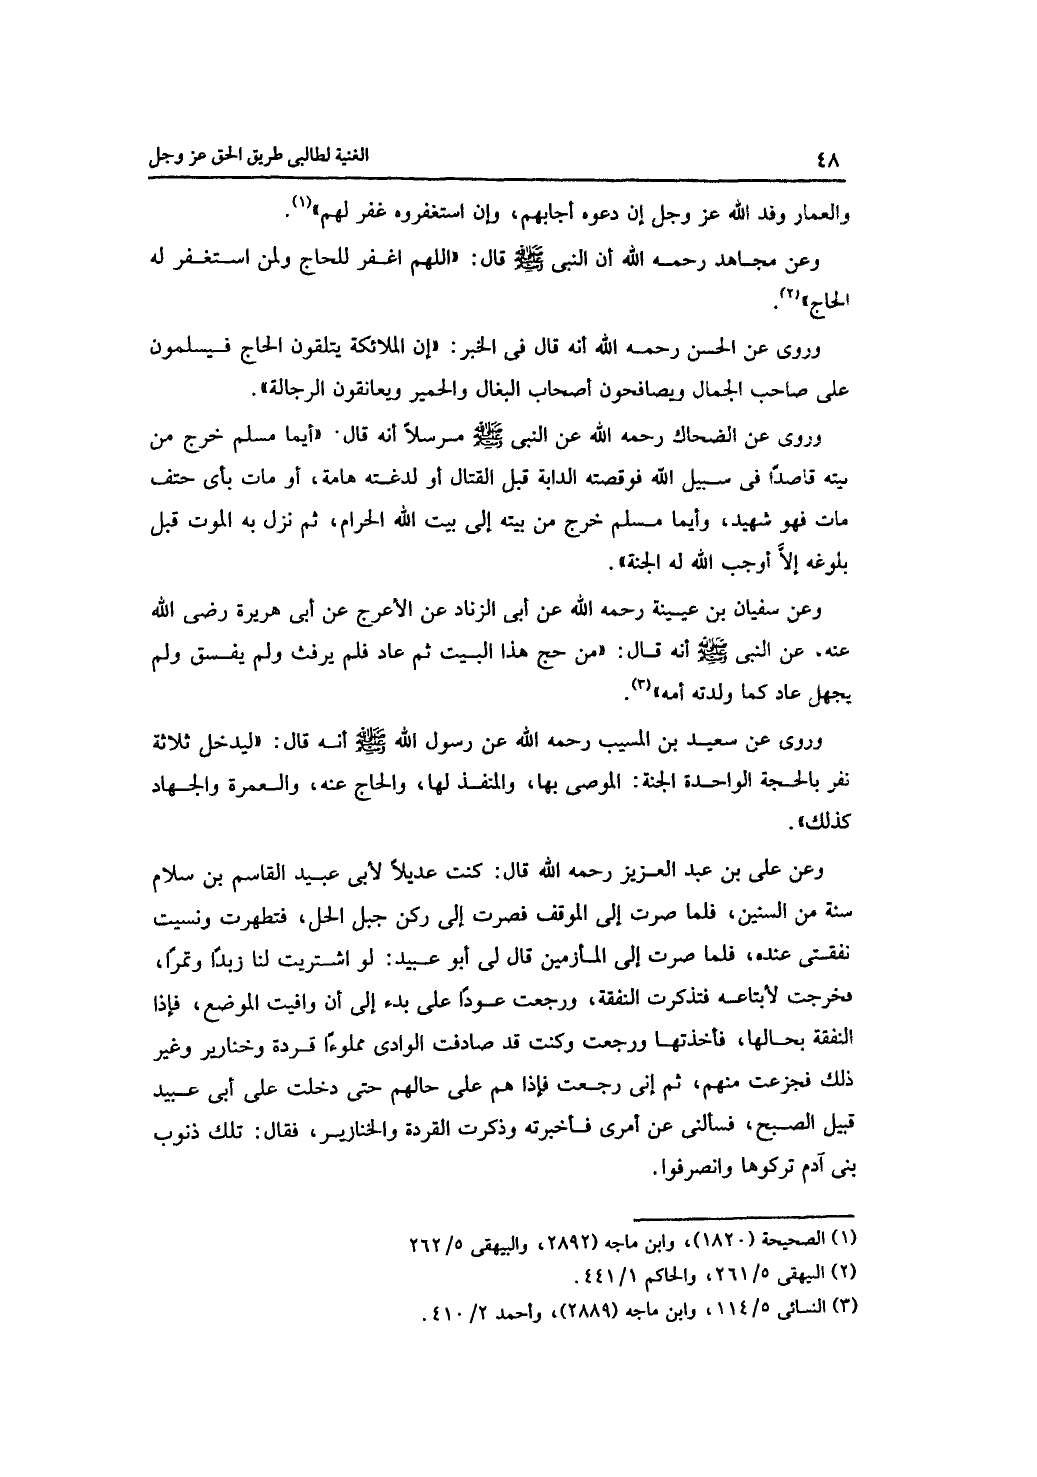 ٤٨ الغنية لطالبى طريق الحق عز وجل
والعمار وفد الله عز وجل إن دعوه أجابهم، وإن استغفروه غفر لهم»(١).
وعن مجاهد رحمه الله أن النبى ﷺ قال: «اللهم اغفر للحاج ولمن استغفر له
الحاج»(٢).
وروى عن الحسن رحمه الله أنه قال فى الخبر: «إن الملائكة يتلقون الحاج فيسلمون
على صاحب الجمال ويصافحون أصحاب البغال والحمير ويعانقون الرجالة».
وروى عن الضحاك رحمه الله عن النبى ﷺ مرسلاً أنه قال: «أيما مسلم خرج من
بيته قاصدًا فى سبيل الله فوقصته الدابة قبل القتال أو لدغته هامة، أو مات بأى حتف
مات فهو شهيد، وأيما مسلم خرج من بيته إلى بيت الله الحرام، ثم نزل به الموت قبل
بلوغه إلاَّ أوجب الله له الجنة».
وعن سفيان بن عيينة رحمه الله عن أبى الزناد عن الأعرج عن أبى هريرة رضى الله
عنه. عن النبى ﷺ أنه قال: «من حج هذا البيت ثم عاد فلم يرفث ولم يفسق ولم
يجهل عاد كما ولدته أمه»(٣).
وروى عن سعيد بن المسيب رحمه الله عن رسول الله ﷺ أنه قال: «ليدخل ثلاثة
نفر بالحجة الواحدة الجنة: الموصى بها، والمنفذ لها، والحاج عنه، والعمرة والجهاد
كذلك».
وعن على بن عبد العزيز رحمه الله قال: كنت عديلاً لأبى عبيد القاسم بن سلام
سنة من السنين، فلما صرت إلى الموقف فصرت إلى ركن جبل الحل، فتطهرت ونسيت
نفقتى عنده، فلما صرت إلى المأزمين قال لى أبو عبيد: لو اشتريت لنا زبدًا وتمرًا،
فخرجت لأبتاعه فتذكرت النفقة، ورجعت عودًا على بدء إلى أن وافيت الموضع، فإذا
النفقة بحالها، فأخذتها ورجعت وكنت قد صادفت الوادى مملوءًا قردة وخنازير وغير
ذلك فجزعت منهم، ثم إنى رجعت فإذا هم على حالهم حتى دخلت على أبى عبيد
قبيل الصبح، فسألنى عن أمرى فأخبرته وذكرت القردة والخنازير، فقال: تلك ذنوب
بنى آدم تركوها وانصرفوا.
(١) الصحيحة (١٨٢٠)، وابن ماجه (٢٨٩٢، والبيهقى ٢٦٢/٥
(٢) البهقى ٢٦١/٥، والحاكم ٤٤١/١.
(٣) النسائى ١١٤/٥، وابن ماجه (٢٨٨٩)، وأحمد ٤١٠/٢.